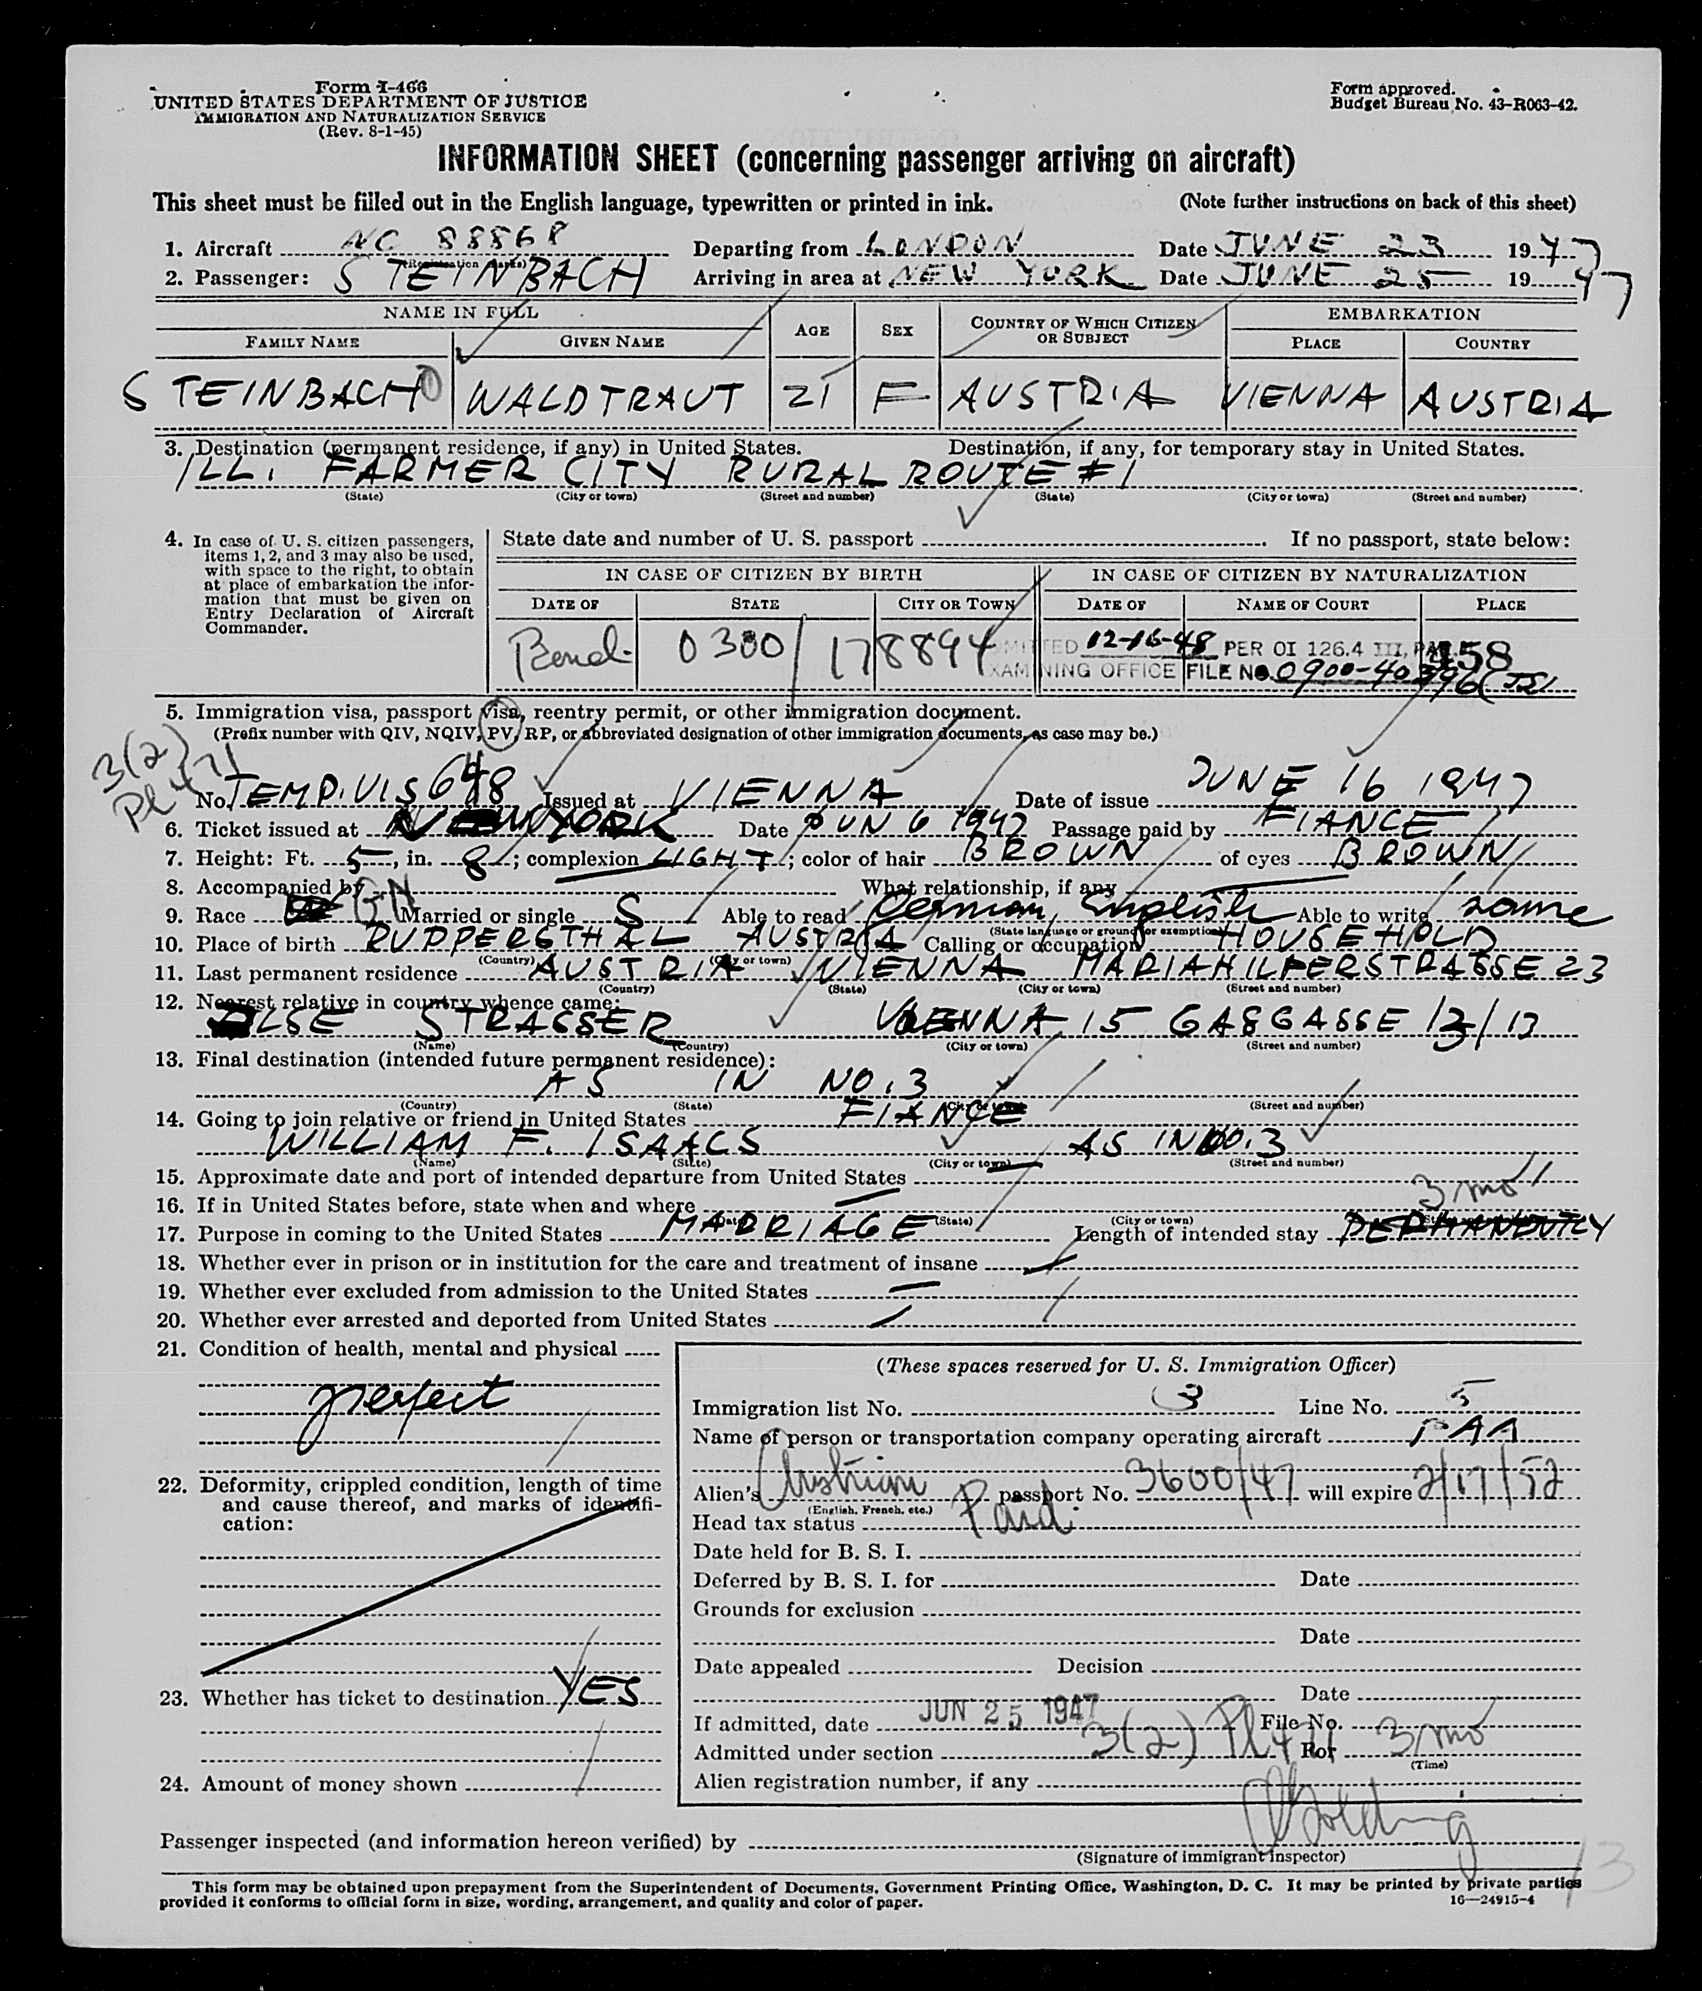 Form I-466
UNITED STATES DEPARTMENT OF JUSTICE
IMMIGRATION AND NATURALIZATION SERVICE
(Rev. 8-1-45)
Form approved.
Budget Bureau No. 43-R063-42.
INFORMATION SHEET (concerning passenger arriving on aircraft)
This sheet must be filled out in the English language, typewritten or printed in ink. (Note further instructions on back of this sheet)
1. Aircraft NC 88868 Departing from LONDON Date JUNE 23 1947
2. Passenger: STEINBACH Arriving in area at NEW YORK Date JUNE 25 1947
NAME IN FULL AGE SEX COUNTRY OF WHICH CITIZEN OR SUBJECT EMBARKATION
FAMILY NAME GIVEN NAME PLACE COUNTRY
STEINBACH WALDTRAUT 21 F AUSTRIA VIENNA AUSTRIA
3. Destination (permanent residence, if any) in United States. Destination, if any, for temporary stay in United States.
ILL. FARMER CITY RURAL ROUTE #1
(State) (City or town) (Street and number) (State) (City or town) (Street and number)
4. In case of U. S. citizen passengers, items 1, 2, and 3 may also be used, with space to the right, to obtain at place of embarkation the information that must be given on Entry Declaration of Aircraft Commander.
State date and number of U. S. passport If no passport, state below:
IN CASE OF CITIZEN BY BIRTH IN CASE OF CITIZEN BY NATURALIZATION
DATE OF STATE CITY OR TOWN DATE OF NAME OF COURT PLACE
Bond 0300/178894 12-16-48 PER OI 126.4 III, 458
EXAMINING OFFICE FILE No. 0900-40396
5. Immigration visa, passport visa, reentry permit, or other immigration document.
(Prefix number with QIV, NQIV, PV, RP, or abbreviated designation of other immigration documents, as case may be.)
3(2)
No. TEMP. VIS 648 Issued at VIENNA Date of issue JUNE 16 1947
6. Ticket issued at NEW YORK Date JUN 6 1947 Passage paid by FIANCE
7. Height: Ft. 5, in. 8; complexion LIGHT; color of hair BROWN of eyes BROWN
8. Accompanied by What relationship, if any
9. Race Married or single S Able to read German, English Able to write same
(State language or ground for exemption)
10. Place of birth RUPPERSTHAL AUSTRIA Calling or occupation HOUSEHOLD
(Country) (City or town)
11. Last permanent residence AUSTRIA VIENNA MARIAHILFERSTRASSE 23
(Country) (State) (City or town) (Street and number)
12. Nearest relative in country whence came:
ILSE STRASSER VIENNA 15 GASGASSE 13
(Name) (Country) (City or town) (Street and number)
13. Final destination (intended future permanent residence):
AS IN NO. 3
(Country) (State) (City or town) (Street and number)
14. Going to join relative or friend in United States FIANCE
WILLIAM F. ISAACS AS IN NO. 3
(Name) (State) (City or town) (Street and number)
15. Approximate date and port of intended departure from United States
16. If in United States before, state when and where 3 mo
(Date) (State) (City or town)
17. Purpose in coming to the United States MARRIAGE Length of intended stay PERMANENTLY
18. Whether ever in prison or in institution for the care and treatment of insane
19. Whether ever excluded from admission to the United States
20. Whether ever arrested and deported from United States
21. Condition of health, mental and physical
perfect
22. Deformity, crippled condition, length of time and cause thereof, and marks of identification:
23. Whether has ticket to destination YES
24. Amount of money shown
(These spaces reserved for U. S. Immigration Officer)
Immigration list No. 3 Line No. 5
Name of person or transportation company operating aircraft PAA
Alien's Austrian passport No. 3600/47 will expire 2/17/52
(English, French, etc.)
Head tax status Paid
Date held for B. S. I.
Deferred by B. S. I. for Date
Grounds for exclusion
Date
Date appealed Decision
Date
If admitted, date JUN 25 1947 File No.
Admitted under section 3(2) For 3 mo
(Time)
Alien registration number, if any
Passenger inspected (and information hereon verified) by
(Signature of immigrant inspector)
13
This form may be obtained upon prepayment from the Superintendent of Documents, Government Printing Office, Washington, D. C. It may be printed by private parties
provided it conforms to official form in size, wording, arrangement, and quality and color of paper. 16—24915-4